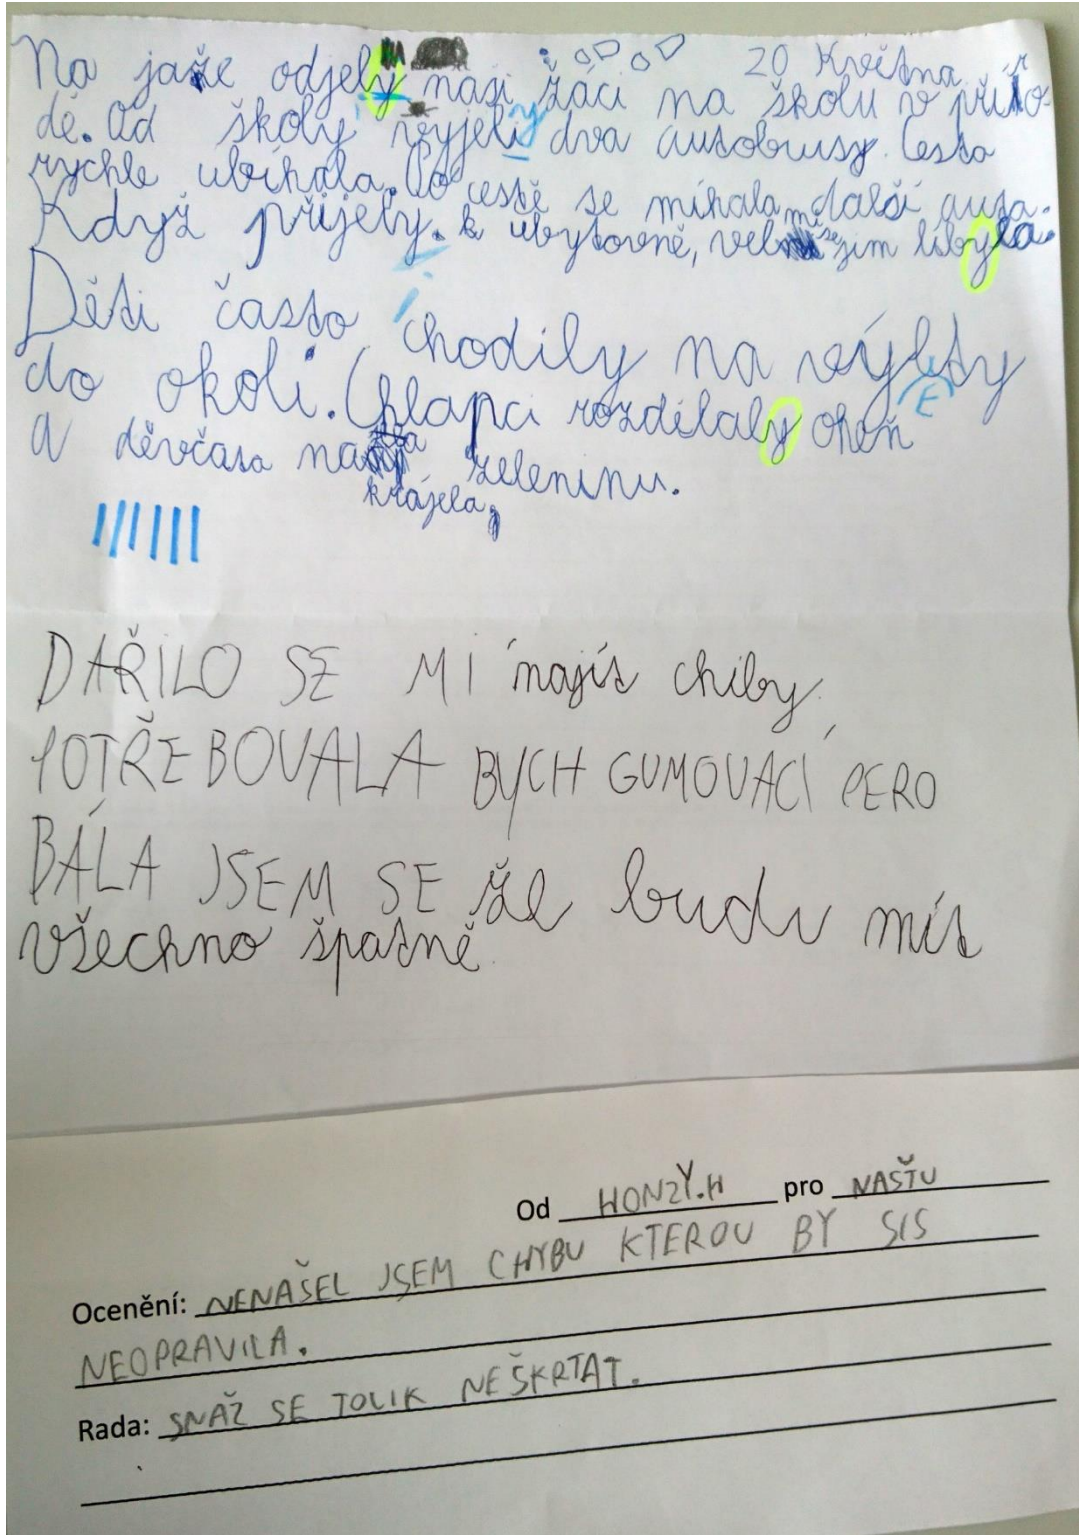 20 Května
Na jaře odjely naši žáci na školu v příro-
dě. Od školy vyjely dva autobusy. Cesta
rychle ubíhala. Po cestě se míhala další auta.
Když přijely. k ubytovně, velmi se jim libyla.
Děti často chodily na výlety
do okolí. Chlapci rozdělaly oheň
a děvčata krájela zeleninu.
DAŘILO SE MI najít chiby.
POTŘEBOVALA BYCH GUMOVACÍ PERO
BÁLA JSEM SE že budu mít
všechno špatně.
Od HONZY.H pro NASŤU
Ocenění: NENAŠEL JSEM CHYBU KTEROU BY SIS
NEOPRAVILA.
Rada: SNAŽ SE TOLIK NEŠKRTAT.